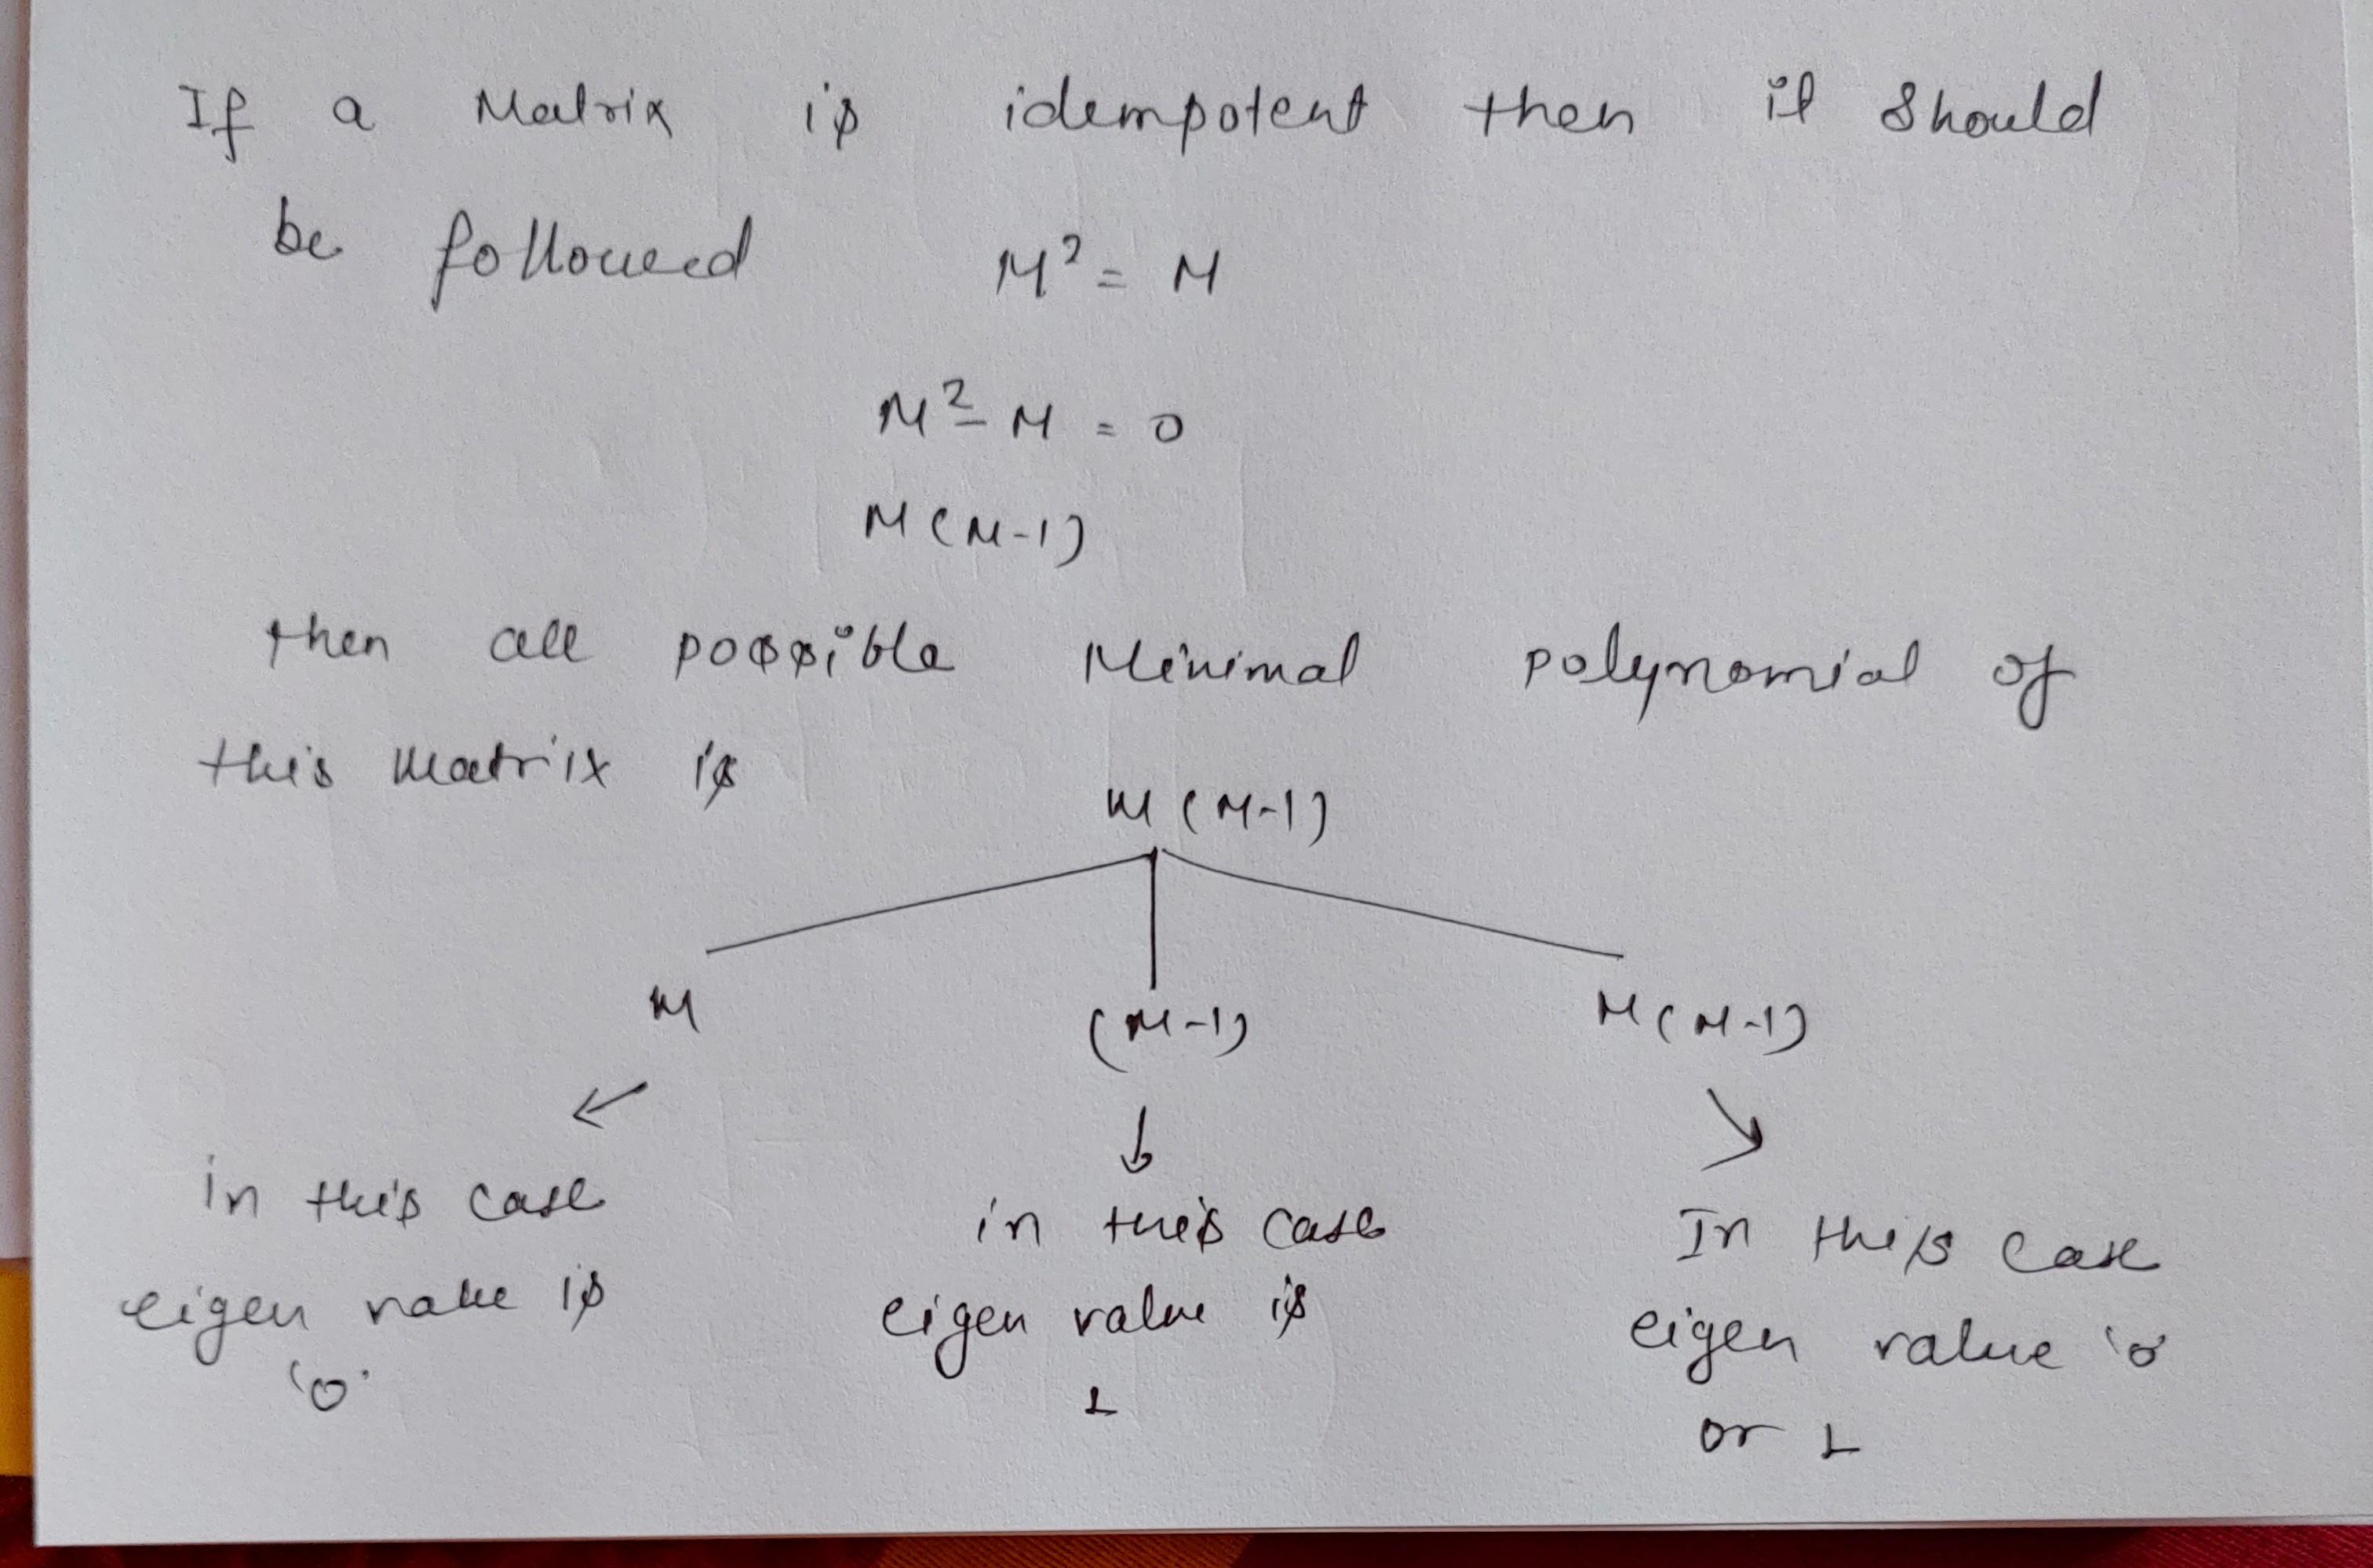 If a Matrix is idempotent then it should
be followed M² = M
M² - M = 0
M(M-1)
then all possible Minimal polynomial of
this matrix is
M(M-1)
M (M-1) M(M-1)
in this case in this case In this case
eigen value is eigen value is eigen value '0'
'0' 1 or 1